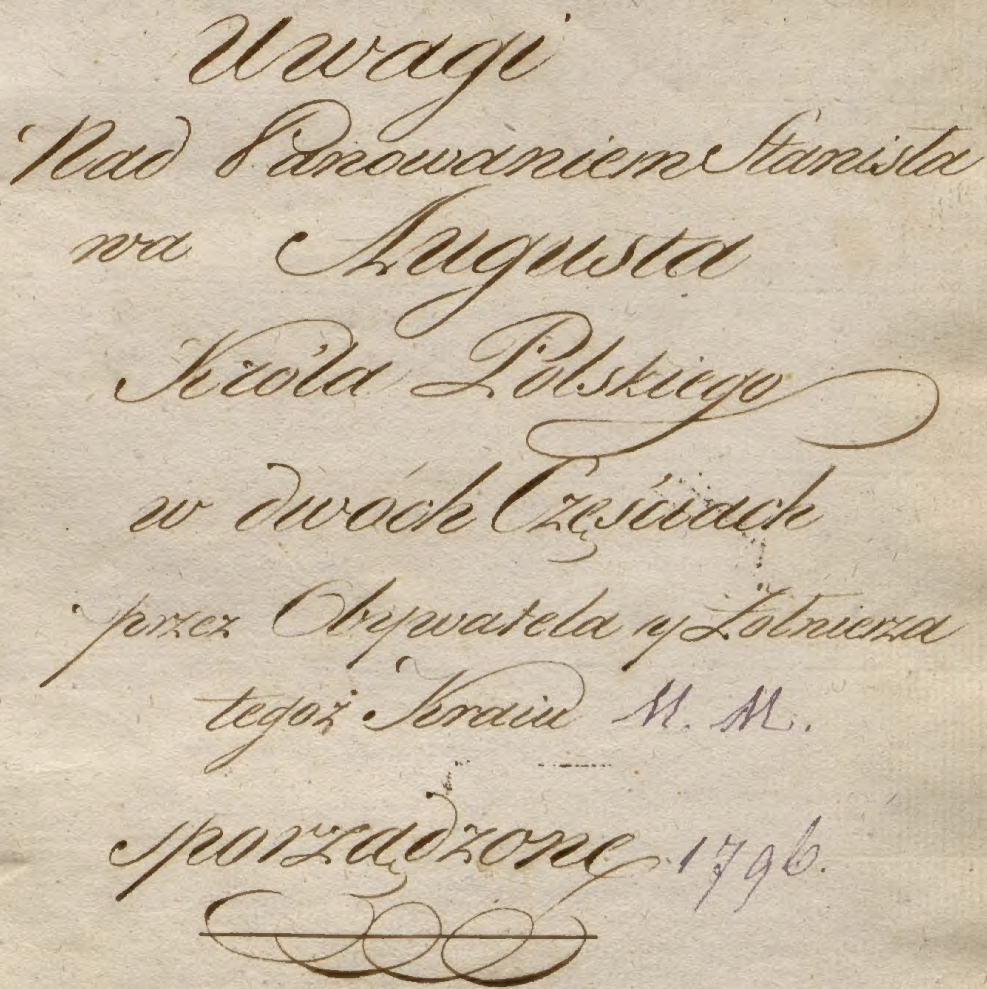 Uwagi
Nad Panowaniem Stanisła
wa Augusta
Króla Polskiego
w dwóch Częściach
przez Obywatela y Żołnierza
tegoż Kraiu M. M.
sporządzone 1796.